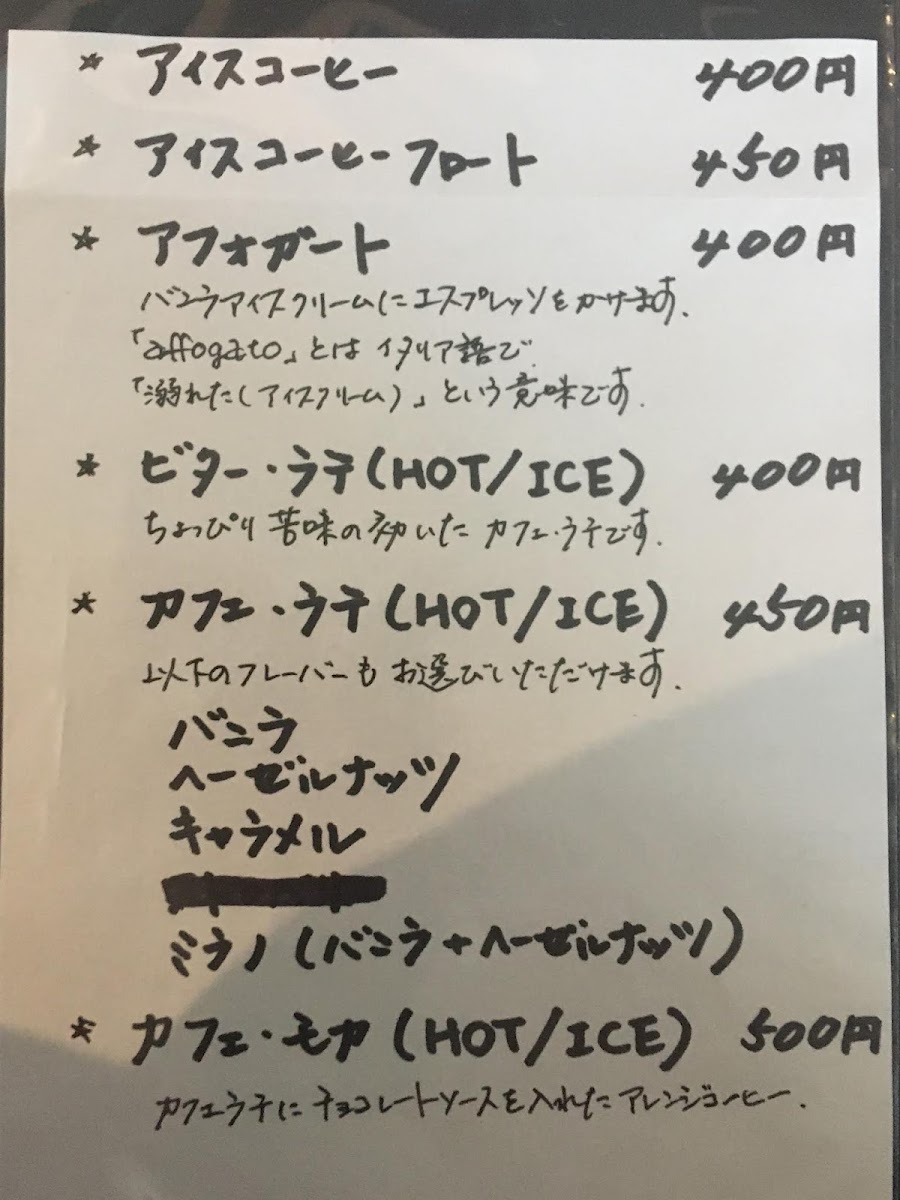 * アイスコーヒー 400円
* アイスコーヒーフロート 450円
* アフォガート 400円
バニラアイスクリームにエスプレッソをかけます.
「affogato」とは イタリア語で
「溺れた(アイスクリーム)」という意味です.
* ビター・ラテ(HOT/ICE) 400円
ちょっぴり苦味の効いた カフェ・ラテです.
* カフェ・ラテ(HOT/ICE) 450円
以下のフレーバーも お選びいただけます.
バニラ
ヘーゼルナッツ
キャラメル
ミラノ (バニラ+ヘーゼルナッツ)
* カフェ・モカ (HOT/ICE) 500円
カフェラテに チョコレートソースを入れた アレンジコーヒー.